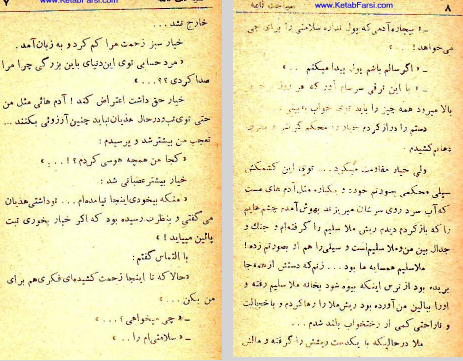 www.KetabFarsi.com
۷
خارج نشد...
خیار سبز زحمت مرا کم کرد و به زبان آمد.
«مرد حسابی توی این دنیای باین بزرگی چرا مرا
صدا کردی ؟؟...»
خیار حق داشت اعتراض کند! آدم هائی مثل من
حتی توی تب و در حال هذیان نباید چنین آرزوئی بکنند...
تعجب من بیشتر شد و پرسیدم :
«کجا من همچه هوسی کردم ؟!...»
خیار بیشتر عصبانی شد :
«منکه بیخودی اینجا نیامده‌ام... تو داشتی هذیان
می‌گفتی و بنظرت رسیده بود که اگر خیار بخوری تبت
پائین میاید !»
با التماس گفتم :
«حالا که تا اینجا زحمت کشیده‌ای فکری هم برای
من بکن...»
ـ «چی میخواهی ؟...»
ـ «سلامتی‌ام را..»
www.KetabFarsi.com
۸
«بیچاره آدمی که پول نداره سلامتی را برای چی
می‌خواهد !...»
ـ «اگر سالم باشم پول پیدا میکنم ...»
ـ «با این ترقی سرسام آور که هر روز
بالا میرود همه چیز را باید توی خواب به‌بینی
دستم را دراز کردم خیار را محکم گرفتم و بطرف
دهانم کشیدم .
ولی خیار مقاومت میکرد... توی این کشمکش
سیلی محکمی بصورتم خورد و یکباره مثل آدم های مست
که آب سرد روی سرشان میریزند بهوش آمدم چشم‌هایم
را که باز کردم دیدم ریش ملا سلیم را گرفته‌ام و جنگ و
جدال بین من و ملا سلیم است و سیلی را هم او بصورتم زده !
ملا سلیم همسایه ما بود... زنم که دستش از همه‌جا
بریده بود از ترس اینکه بیوه شود بخانه ملا سلیم رفته و
او را ببالین من آورده بود ریش ملا را رها کردم و با خجالت
و ناراحتی کمی از رختخواب بلند شدم ...
ملا در حالیکه با یکدست ریشش را گرفته و مالش